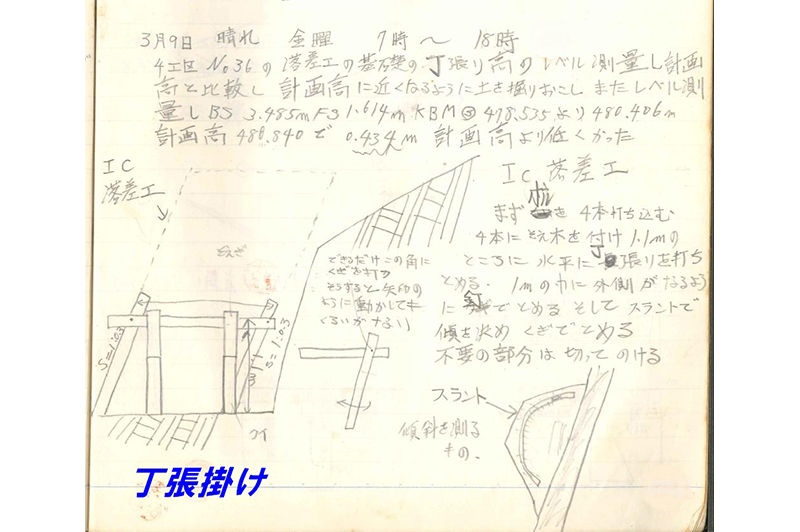 3月9日 晴れ 金曜 7時〜18時
4工区 No36の落差工の基礎の丁張り高のレベル測量し計画
高と比較し計画高に近くなるように土を掘りおこし またレベル測
量し BS 3.485m FS 1.614m KBM ③ 478.535より 480.406m
計画高 480.840で 0.434m 計画高より低くかった
IC
落差工
IC 落差工
まず を4本打ち込む
4本に そえ木を付け 1.1mの
ところに 水平に 丁張りを打ち
とめる. 1mの巾に外側がなるよう
に 釘でとめる そして スラントで
傾を決め くぎでとめる
不要の部分は切ってのける
できるだけこの角に
くぎを打つ
そうすると矢印の
ように動かしても
くるいがない
S=1:0.3
S=1:0.3
1.1m
スラント
傾斜を測る
もの.
丁張掛け